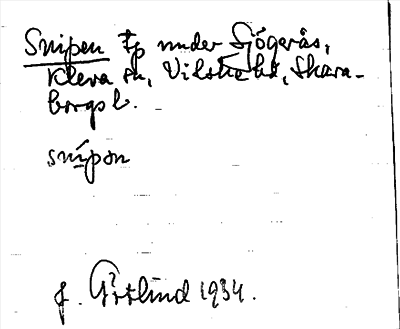 Snipen tp under Sjögerås,
Kleva sn, Vilske hd, Skara-
borgs l.
snipɘn
f. Götlind 1934.